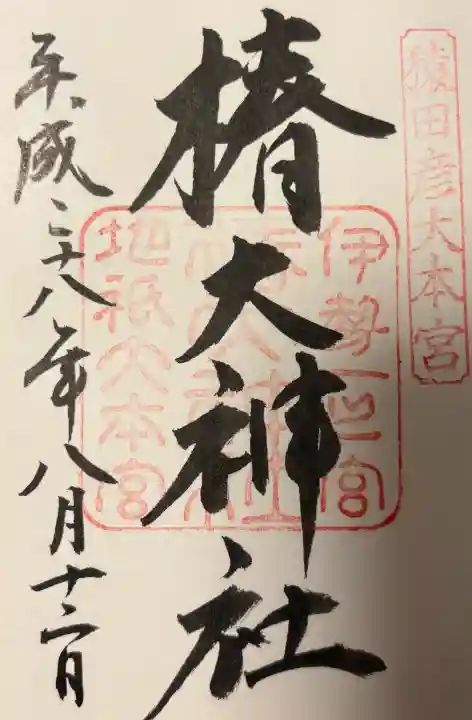 猿田彦大本宮
椿大神社
伊勢一之宮
地祇大本宮
平成二十八年八月十二日